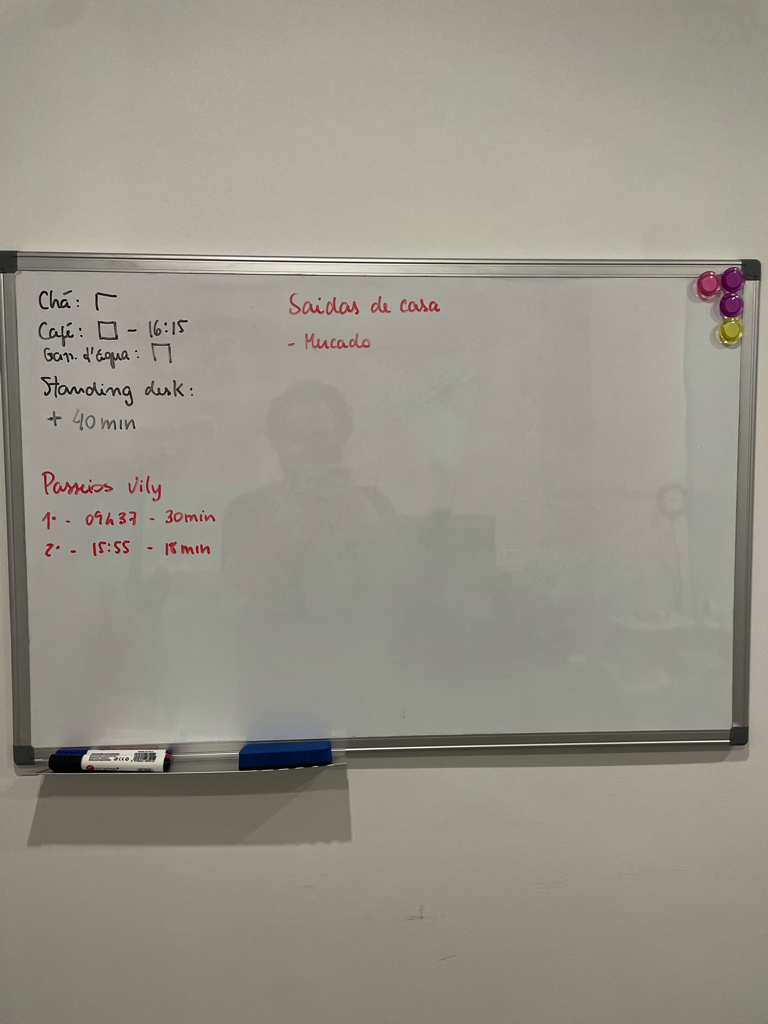 Chá:
Café: - 16:15
Gar. d'água:
Standing desk:
+ 40 min
Passeios Vily
1º - 09h37 - 30min
2º - 15:55 - 18min
Saidas de casa
- Mercado